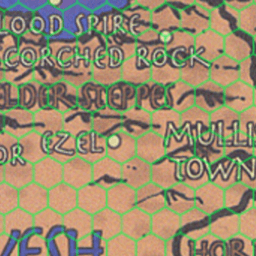 LOOD SPIRE
SCORCHED ROCK
ELDER STEPPES
OR EZEL
MULLI
TOWN
ESH
HOR